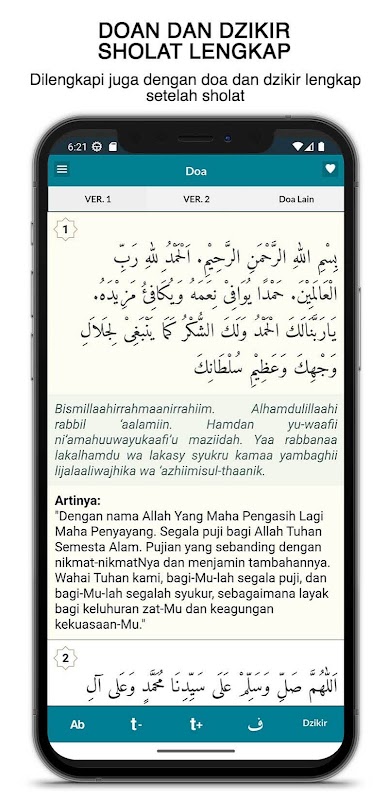 DOAN DAN DZIKIR
SHOLAT LENGKAP
Dilengkapi juga dengan doa dan dzikir lengkap
setelah sholat
6:21
Doa
VER. 1
VER. 2
Doa Lain
1
بِسْمِ اللهِ الرَّحْمَنِ الرَّحِيْمِ. اَلْحَمْدُ لِلّٰهِ رَبِّ
الْعَالَمِيْنَ. حَمْدًا يُوَافِيْ نِعَمَهُ وَيُكَافِئُ مَزِيْدَهُ.
يَارَبَّنَالَكَ الْحَمْدُ وَلَكَ الشُّكْرُ كَمَا يَنْبَغِيْ لِجَلَالِ
وَجْهِكَ وَعَظِيْمِ سُلْطَانِكَ
Bismillaahirrahmaanirrahiim. Alhamdulillaahi
rabbil ‘aalamiin. Hamdan yu-waafii
ni’amahuuwayukaafi’u maziidah. Yaa rabbanaa
lakalhamdu wa lakasy syukru kamaa yambaghii
lijalaaliwajhika wa ‘azhiimisul-thaanik.
Artinya:
"Dengan nama Allah Yang Maha Pengasih Lagi
Maha Penyayang. Segala puji bagi Allah Tuhan
Semesta Alam. Pujian yang sebanding dengan
nikmat-nikmatNya dan menjamin tambahannya.
Wahai Tuhan kami, bagi-Mu-lah segala puji, dan
bagi-Mu-lah segala syukur, sebagaimana layak
bagi keluhuran zat-Mu dan keagungan
kekuasaan-Mu."
2
اَللّٰهُمَّ صَلِّ وَسَلِّمْ عَلَى سَيِّدِنَا مُحَمَّدٍ وَعَلَى آلِ
Ab
t-
t+
ف
Dzikir